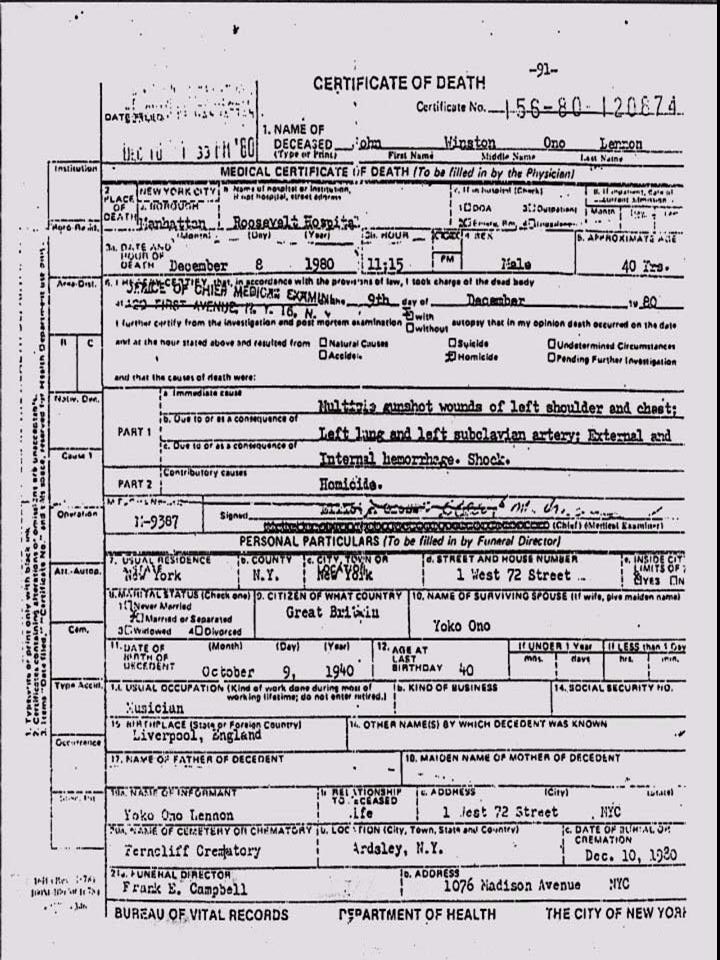 -91-
CERTIFICATE OF DEATH
Certificate No. 156-80-120874
DATE FILED
DEC 10 1 33 PM '80
1. NAME OF
DECEASED John Winston Ono Lennon
(Type or Print) First Name Middle Name Last Name
Institution
MEDICAL CERTIFICATE OF DEATH (To be filled in by the Physician)
2 PLACE OF DEATH
NEW YORK CITY
a. BOROUGH
Manhattan
b Name of hospital or institution,
If not hospital, street address
Roosevelt Hospital
c. If in hospital (Check)
1☐DOA 3☐Outpatient
3a. DATE AND
HOUR OF
DEATH
(Month) (Day) (Year)
December 8 1980
3b. HOUR
11:15
PM
4 SEX
Male
5. APPROXIMATE AGE
40 Yrs.
that, in accordance with the provisions of law, I took charge of the dead body
OFFICE OF CHIEF MEDICAL EXAMINER
at FIRST AVENUE, N. Y. 16, N. Y. 9th day of December 19 80
I further certify from the investigation and post mortem examination ☑with
☐without autopsy that in my opinion death occurred on the date
and at the hour stated above and resulted from ☐Natural Causes ☐Suicide ☐Undetermined Circumstances
☐Accident ☒Homicide ☐Pending Further Investigation
and that the causes of death were:
R C
PART 1
a Immediate cause
Multiple gunshot wounds of left shoulder and chest;
b. Due to or as a consequence of
Left lung and left subclavian artery; External and
Cause 1
c. Due to or as a consequence of
Internal hemorrhage. Shock.
PART 2
Contributory causes
Homicide.
Operation
Signed
(Chief) (Medical Examiner)
PERSONAL PARTICULARS (To be filled in by Funeral Director)
7. USUAL RESIDENCE
a. STATE
New York
b. COUNTY
N.Y.
c. CITY, TOWN OR
LOCATION
New York
d. STREET AND HOUSE NUMBER
1 West 72 Street
8. MARITAL STATUS (Check one)
1☐Never Married
☒Married or Separated
3☐Widowed 4☐Divorced
9. CITIZEN OF WHAT COUNTRY
Great Britain
10. NAME OF SURVIVING SPOUSE (If wife, give maiden name)
Yoko Ono
Cem.
11. DATE OF
BIRTH OF
DECEDENT
(Month) (Day) (Year)
October 9, 1940
12. AGE AT
LAST
BIRTHDAY 40
If UNDER 1 Year
mos. days
If LESS than 1 Day
hrs. min.
Type Accid.
13. USUAL OCCUPATION (Kind of work done during most of
working lifetime; do not enter retired.)
Musician
b. KIND OF BUSINESS
14. SOCIAL SECURITY NO.
15 BIRTHPLACE (State or Foreign Country)
Liverpool, England
16. OTHER NAME(S) BY WHICH DECEDENT WAS KNOWN
Occurrence
17. NAME OF FATHER OF DECEDENT
18. MAIDEN NAME OF MOTHER OF DECEDENT
19a. NAME OF INFORMANT
Yoko Ono Lennon
b RELATIONSHIP
TO DECEASED
c. ADDRESS (City) (State)
1 West 72 Street NYC
20a. NAME OF CEMETERY OR CREMATORY
Ferncliff Crematory
b. LOCATION (City, Town, State and Country)
Ardsley, N.Y.
c. DATE OF BURIAL OR
CREMATION
Dec. 10, 1980
21a. FUNERAL DIRECTOR
Frank E. Campbell
b. ADDRESS
1076 Madison Avenue NYC
BUREAU OF VITAL RECORDS DEPARTMENT OF HEALTH THE CITY OF NEW YORK